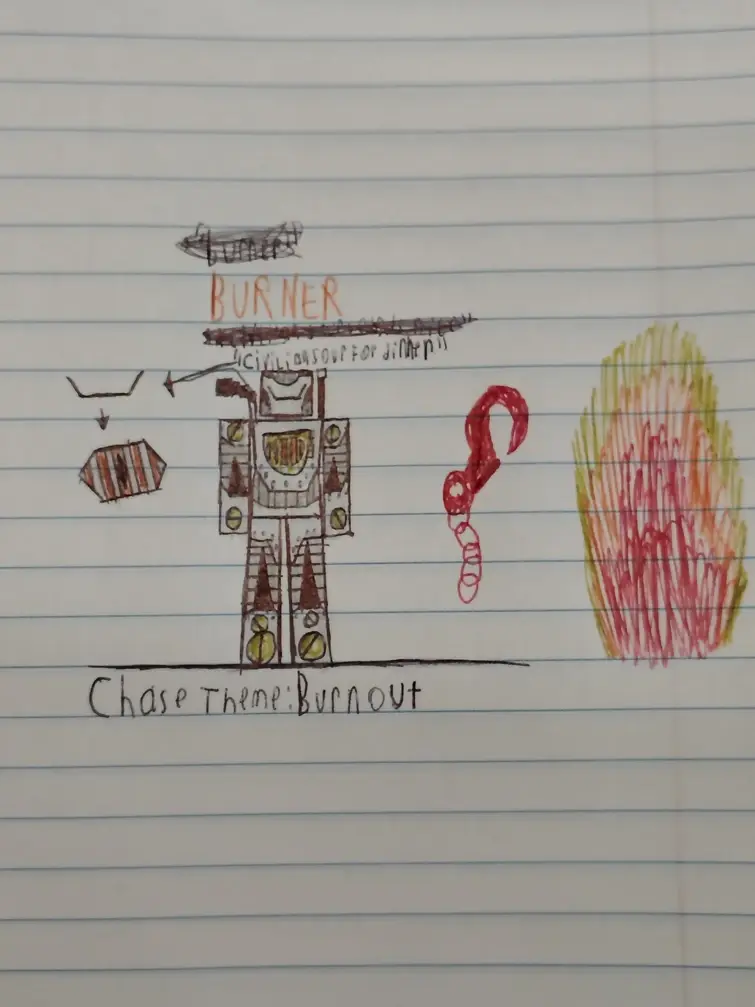 Burner
BURNER
"Civilian soup for dinner"
Chase Theme: Burnout